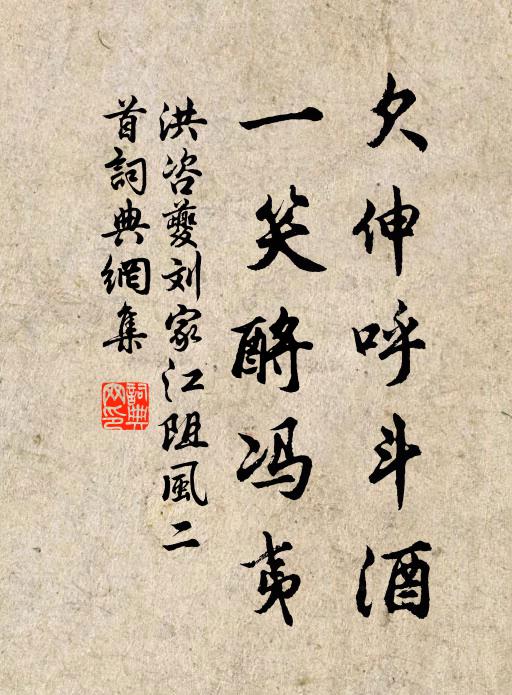 欠伸呼斗酒
一笑酹冯夷
洪咨夔刘家江阻風二
首詞典網集
詞典网印